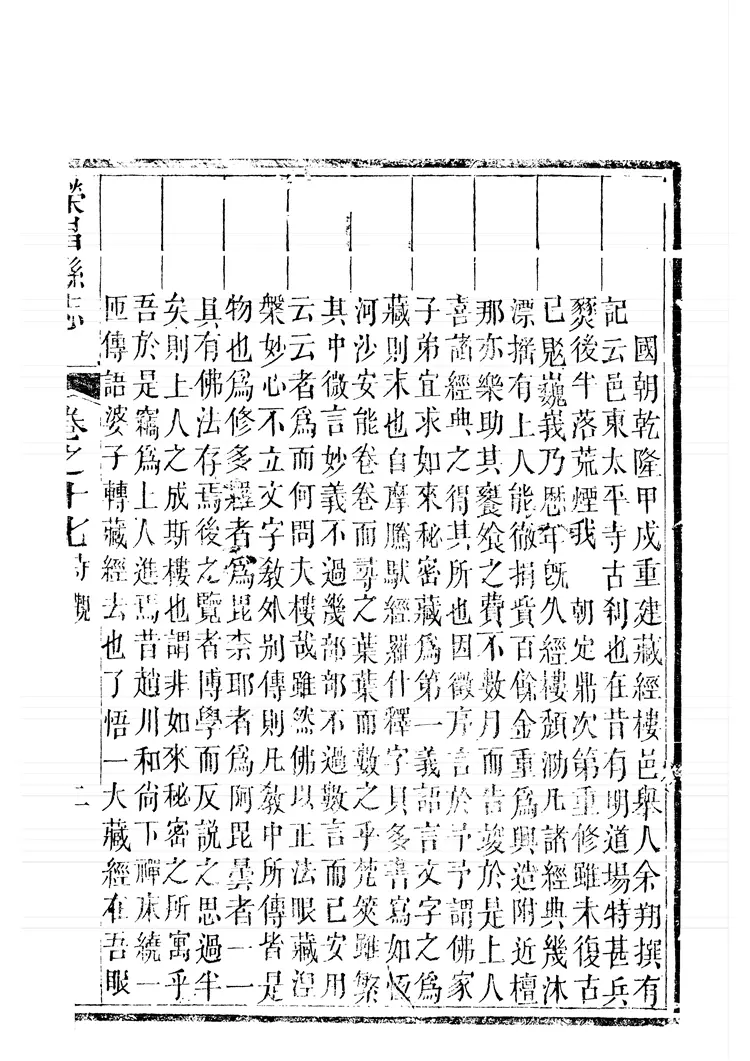 國朝乾隆甲戌重建藏經樓邑舉人余翔撰有
記云邑東太平寺古刹也在昔有明道場特甚兵
燹後半落荒煙我 朝定鼎次第重修雖未復古
已覐巍峩乃歷年旣久經樓頹泐凡諸經典幾沐
漂搖有上人能徹捐貲百餘金重爲興造附近檀
那亦樂助其饔飧之費不數月而告竣於是上人
喜諸經典之得其所也因徵序言於予予謂佛家
子弟宜求如來秘密藏爲第一義諦言文字之爲
藏則末也自摩騰馱經羅什釋字貝多書寫如恆
河沙安能卷卷而尋之葉葉而數之乎梵筴雖繁
其中微言妙義不過幾部部不過數言而已安用
云云者爲而何問大樓哉雖然佛以正法眼藏湼
槃妙心不立文字敎外别傳則凡敎中所傳皆是
物也爲修多羅者爲毘柰耶者爲阿毘曇者一一
具有佛法存焉後之覽者博學而反說之思過半
矣則上人之成斯樓也謂非如來秘密之所寓乎
吾於是竊爲上人進焉昔趙川和尙下禪床繞一
匝傳語婆子轉藏經去也了悟一大藏經在吾眼
榮昌縣志
卷之十七 寺觀
二